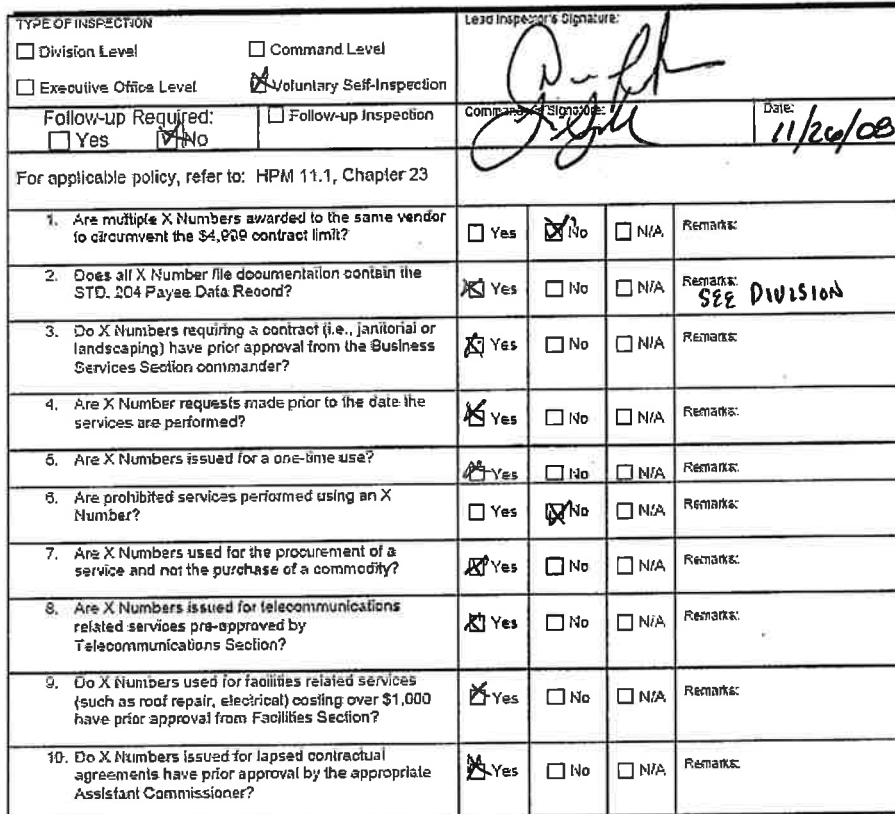 TYPE OF INSPECTION
☐ Division Level ☐ Command Level
☐ Executive Office Level ☒ Voluntary Self-Inspection
Lead Inspector's Signature:
Follow-up Required:
☐ Yes ☒ No
☐ Follow-up Inspection
Commander's Signature:
Date:
11/26/08
For applicable policy, refer to: HPM 11.1, Chapter 23
1. Are multiple X Numbers awarded to the same vendor
to circumvent the $4,999 contract limit?
☐ Yes ☒ No ☐ N/A Remarks:
2. Does all X Number file documentation contain the
STD. 204 Payee Data Record?
☒ Yes ☐ No ☐ N/A Remarks:
SEE DIVISION
3. Do X Numbers requiring a contract (i.e., janitorial or
landscaping) have prior approval from the Business
Services Section commander?
☒ Yes ☐ No ☐ N/A Remarks:
4. Are X Number requests made prior to the date the
services are performed?
☒ Yes ☐ No ☐ N/A Remarks:
5. Are X Numbers issued for a one-time use?
☒ Yes ☐ No ☐ N/A Remarks:
6. Are prohibited services performed using an X
Number?
☐ Yes ☒ No ☐ N/A Remarks:
7. Are X Numbers used for the procurement of a
service and not the purchase of a commodity?
☒ Yes ☐ No ☐ N/A Remarks:
8. Are X Numbers issued for telecommunications
related services pre-approved by
Telecommunications Section?
☒ Yes ☐ No ☐ N/A Remarks:
9. Do X Numbers used for facilities related services
(such as roof repair, electrical) costing over $1,000
have prior approval from Facilities Section?
☒ Yes ☐ No ☐ N/A Remarks:
10. Do X Numbers issued for lapsed contractual
agreements have prior approval by the appropriate
Assistant Commissioner?
☒ Yes ☐ No ☐ N/A Remarks: